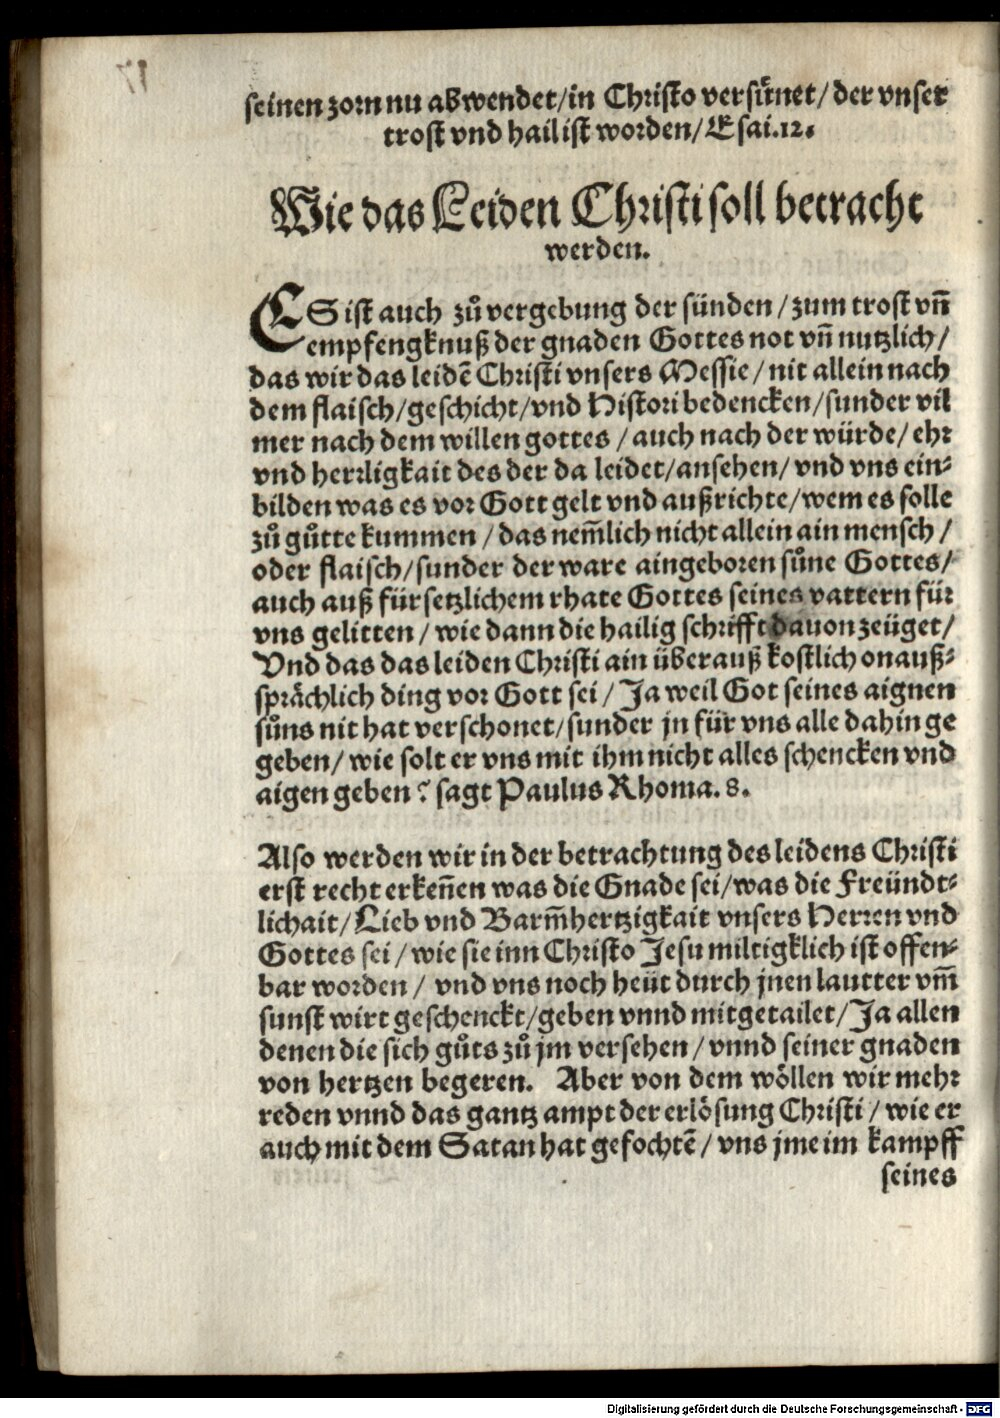 seinen zorn nu abwendet/in Christo versuͤnet/ der vnser
trost vnd hail ist worden/ Esai.12.
Wie das Leiden Christi soll betracht
werden.
ES ist auch zuͦ vergebung der sünden / zum trost vñ
empfengknuß der gnaden Gottes not vñ nutzlich/
das wir das leidẽ Christi vnsers Messie / nit allein nach
dem flaisch/geschicht/vnd Histori bedencken/sunder vil
mer nach dem willen gottes / auch nach der würde/ ehr
vnd herrligkait des der da leidet/ansehen/ vnd vns ein-
bilden was es vor Gott gelt vnd außrichte/wem es solle
zuͦ guͦtte kummen / das nem̃lich nicht allein ain mensch /
oder flaisch/sunder der ware aingeboren suͦne Gottes/
auch auß fürsetzlichem rhate Gottes seines vattern für
vns gelitten / wie dann die hailig schrifft dauon zeüget/
Vnd das das leiden Christi ain überauß kostlich onauß-
sprächlich ding vor Gott sei / Ja weil Got seines aignen
suͦns nit hat verschonet/sunder jn für vns alle dahin ge
geben/ wie solt er vns mit ihm nicht alles schencken vnd
aigen geben? sagt Paulus Rhoma. 8.
Also werden wir in der betrachtung des leidens Christi
erst recht erkeñen was die Gnade sei/was die Freündt-
lichait/ Lieb vnd Barm̃hertzigkait vnsers Herren vnd
Gottes sei / wie sie inn Christo Jesu miltigklich ist offen-
bar worden / vnd vns noch heüt durch jnen lautter vm̃
sunst wirt geschenckt/geben vnnd mitgetailet/Ja allen
denen die sich guͦts zuͦ jm versehen / vnnd seiner gnaden
von hertzen begeren. Aber von dem wöllen wir mehr
reden vnnd das gantz ampt der erlösung Christi / wie er
auch mit dem Satan hat gefochtẽ / vns jme im kampff
seines
Digitalisierung gefördert durch die Deutsche Forschungsgemeinschaft - DFG